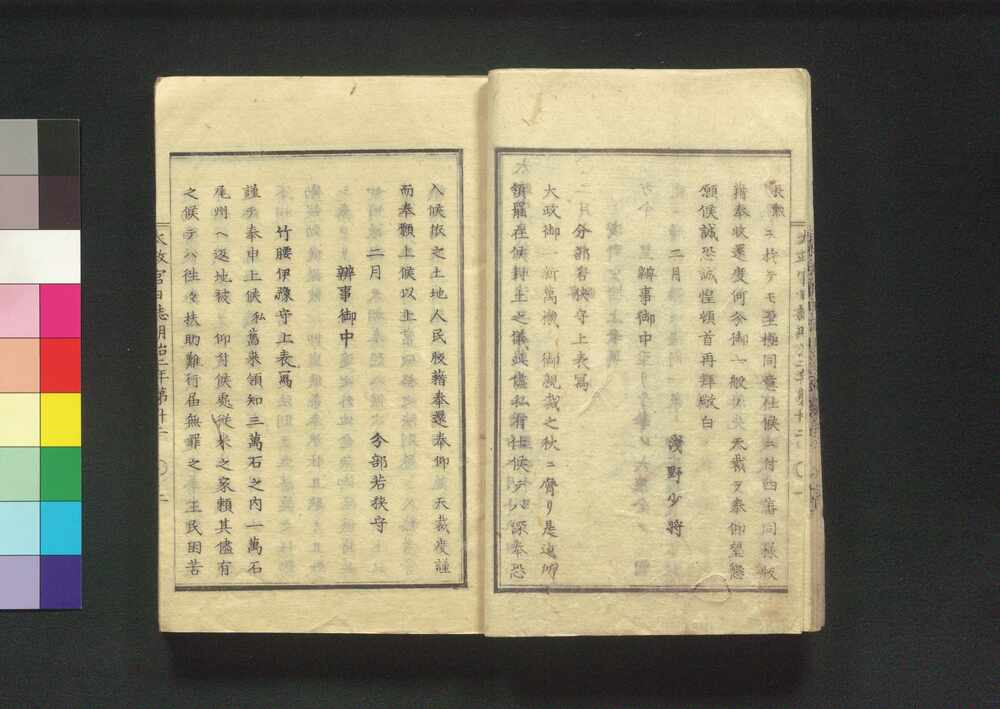 長勲
ニ於テモ至極同意仕候ニ付四藩同様版
籍奉收還度何分御一般 天裁ヲ奉仰望懇
願候誠恐誠惶頓首再拜敬白
二月 淺野少將
辨事御中
二月分部若狹守上表寫
大政御一新萬機 御親裁之秋ニ膺リ是迄所
領罷在候封土之儀其儘私有仕候テハ深奉恐
入候依之土地人民版籍奉還奉仰 天裁度謹
而奉願上候以上
二月 分部若狹守
辨事御中
竹腰伊豫守上表寫
謹テ奉申上候私舊來領知三萬石之内一萬石
尾州ヘ返地被 仰付候處從來之家頼其儘有
之候テハ往々扶助難行届無罪之 王民困苦
太政官日誌明治二年第廿二 二